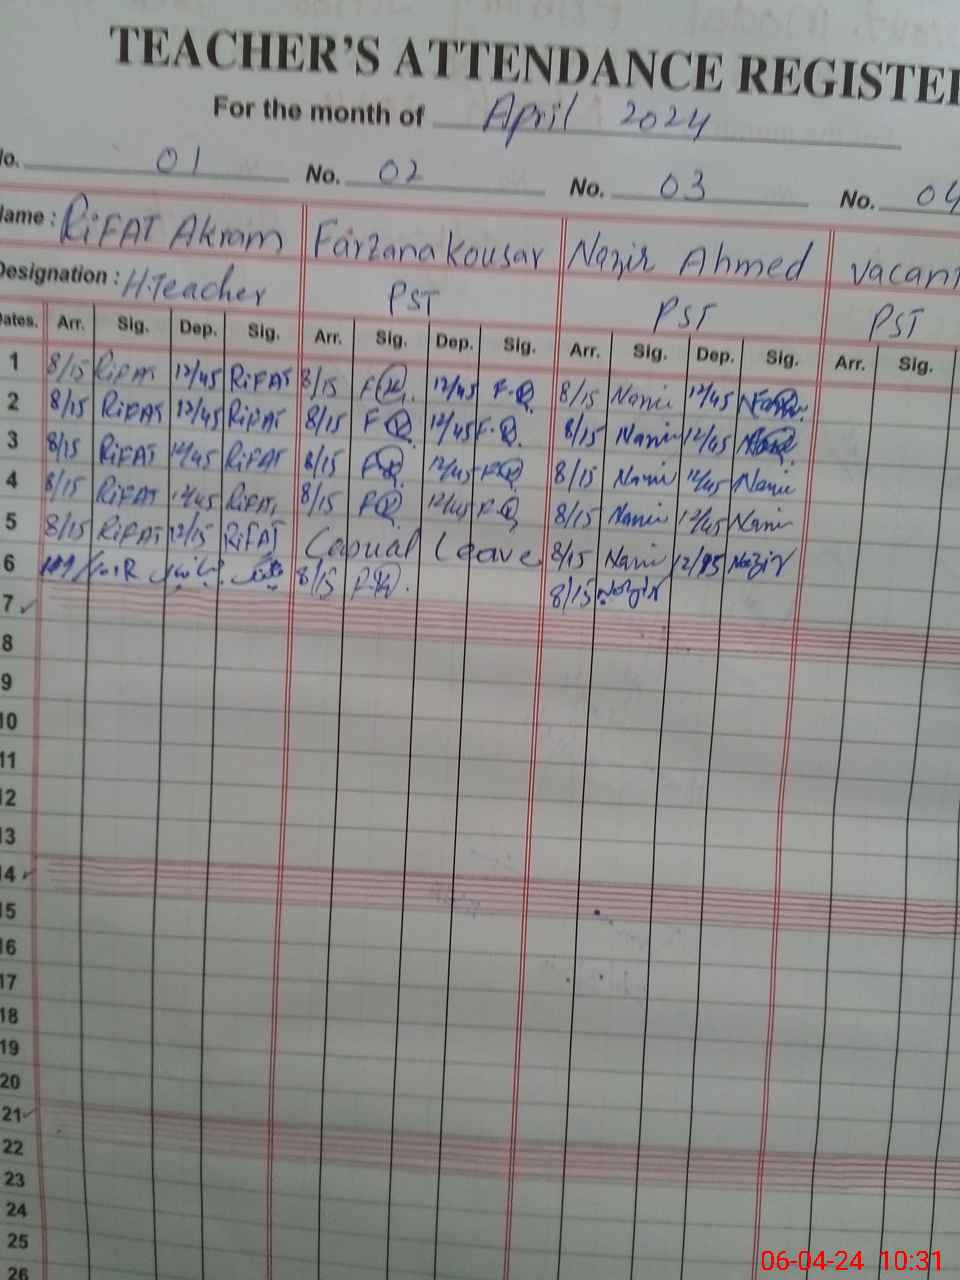 TEACHER'S ATTENDANCE REGISTER
For the month of April 2024
No. 01 No. 02 No. 03 No. 04
Name : RiFAT Akram Farzana Kousar Nazir Ahmed Vacant
Designation : H.Teacher PST PST PST
Dates. Arr. Sig. Dep. Sig. Arr. Sig. Dep. Sig. Arr. Sig. Dep. Sig. Arr. Sig.
1 8/15 RiFAT 12/45 RiFAT 8/15 12/45 8/15 12/45
2 8/15 RiFAT 12/45 RiFAT 8/15 12/45 8/15 12/45
3 8/15 RiFAT 12/45 RiFAT 8/15 12/45 8/15 12/45
4 8/15 RiFAT 12/45 RiFAT 8/15 12/45 8/15 12/45
5 8/15 RiFAT 12/15 RiFAT Casual Leave 8/15 Nazir
6 8/15 8/15 Nazir
7
8
9
10
11
12
13
14
15
16
17
18
19
20
21
22
23
24
25
26
06-04-24 10:31